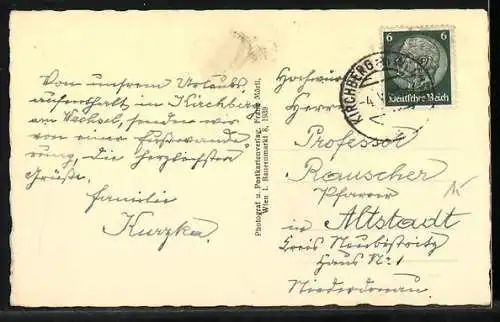 Von unsrem Urlaubs
aufenthalt in Kirchberg
am Wechsel, senden wir
von einer Fusswande
rung, die herzlichsten
Grüße.
Familie
Kurzka.
Photograf u. Postkartenverlag, Franz Mörtl,
Wien 1. Bauernmarkt 8, 1939
6 6
Deutsches Reich
KIRCHBERG
-4.
Hochwürden
Herrn
Professor
Rauscher
Pfarrer
in Altstadt
Kreis Neubistritz
Haus Nr. 1
Niederdonau